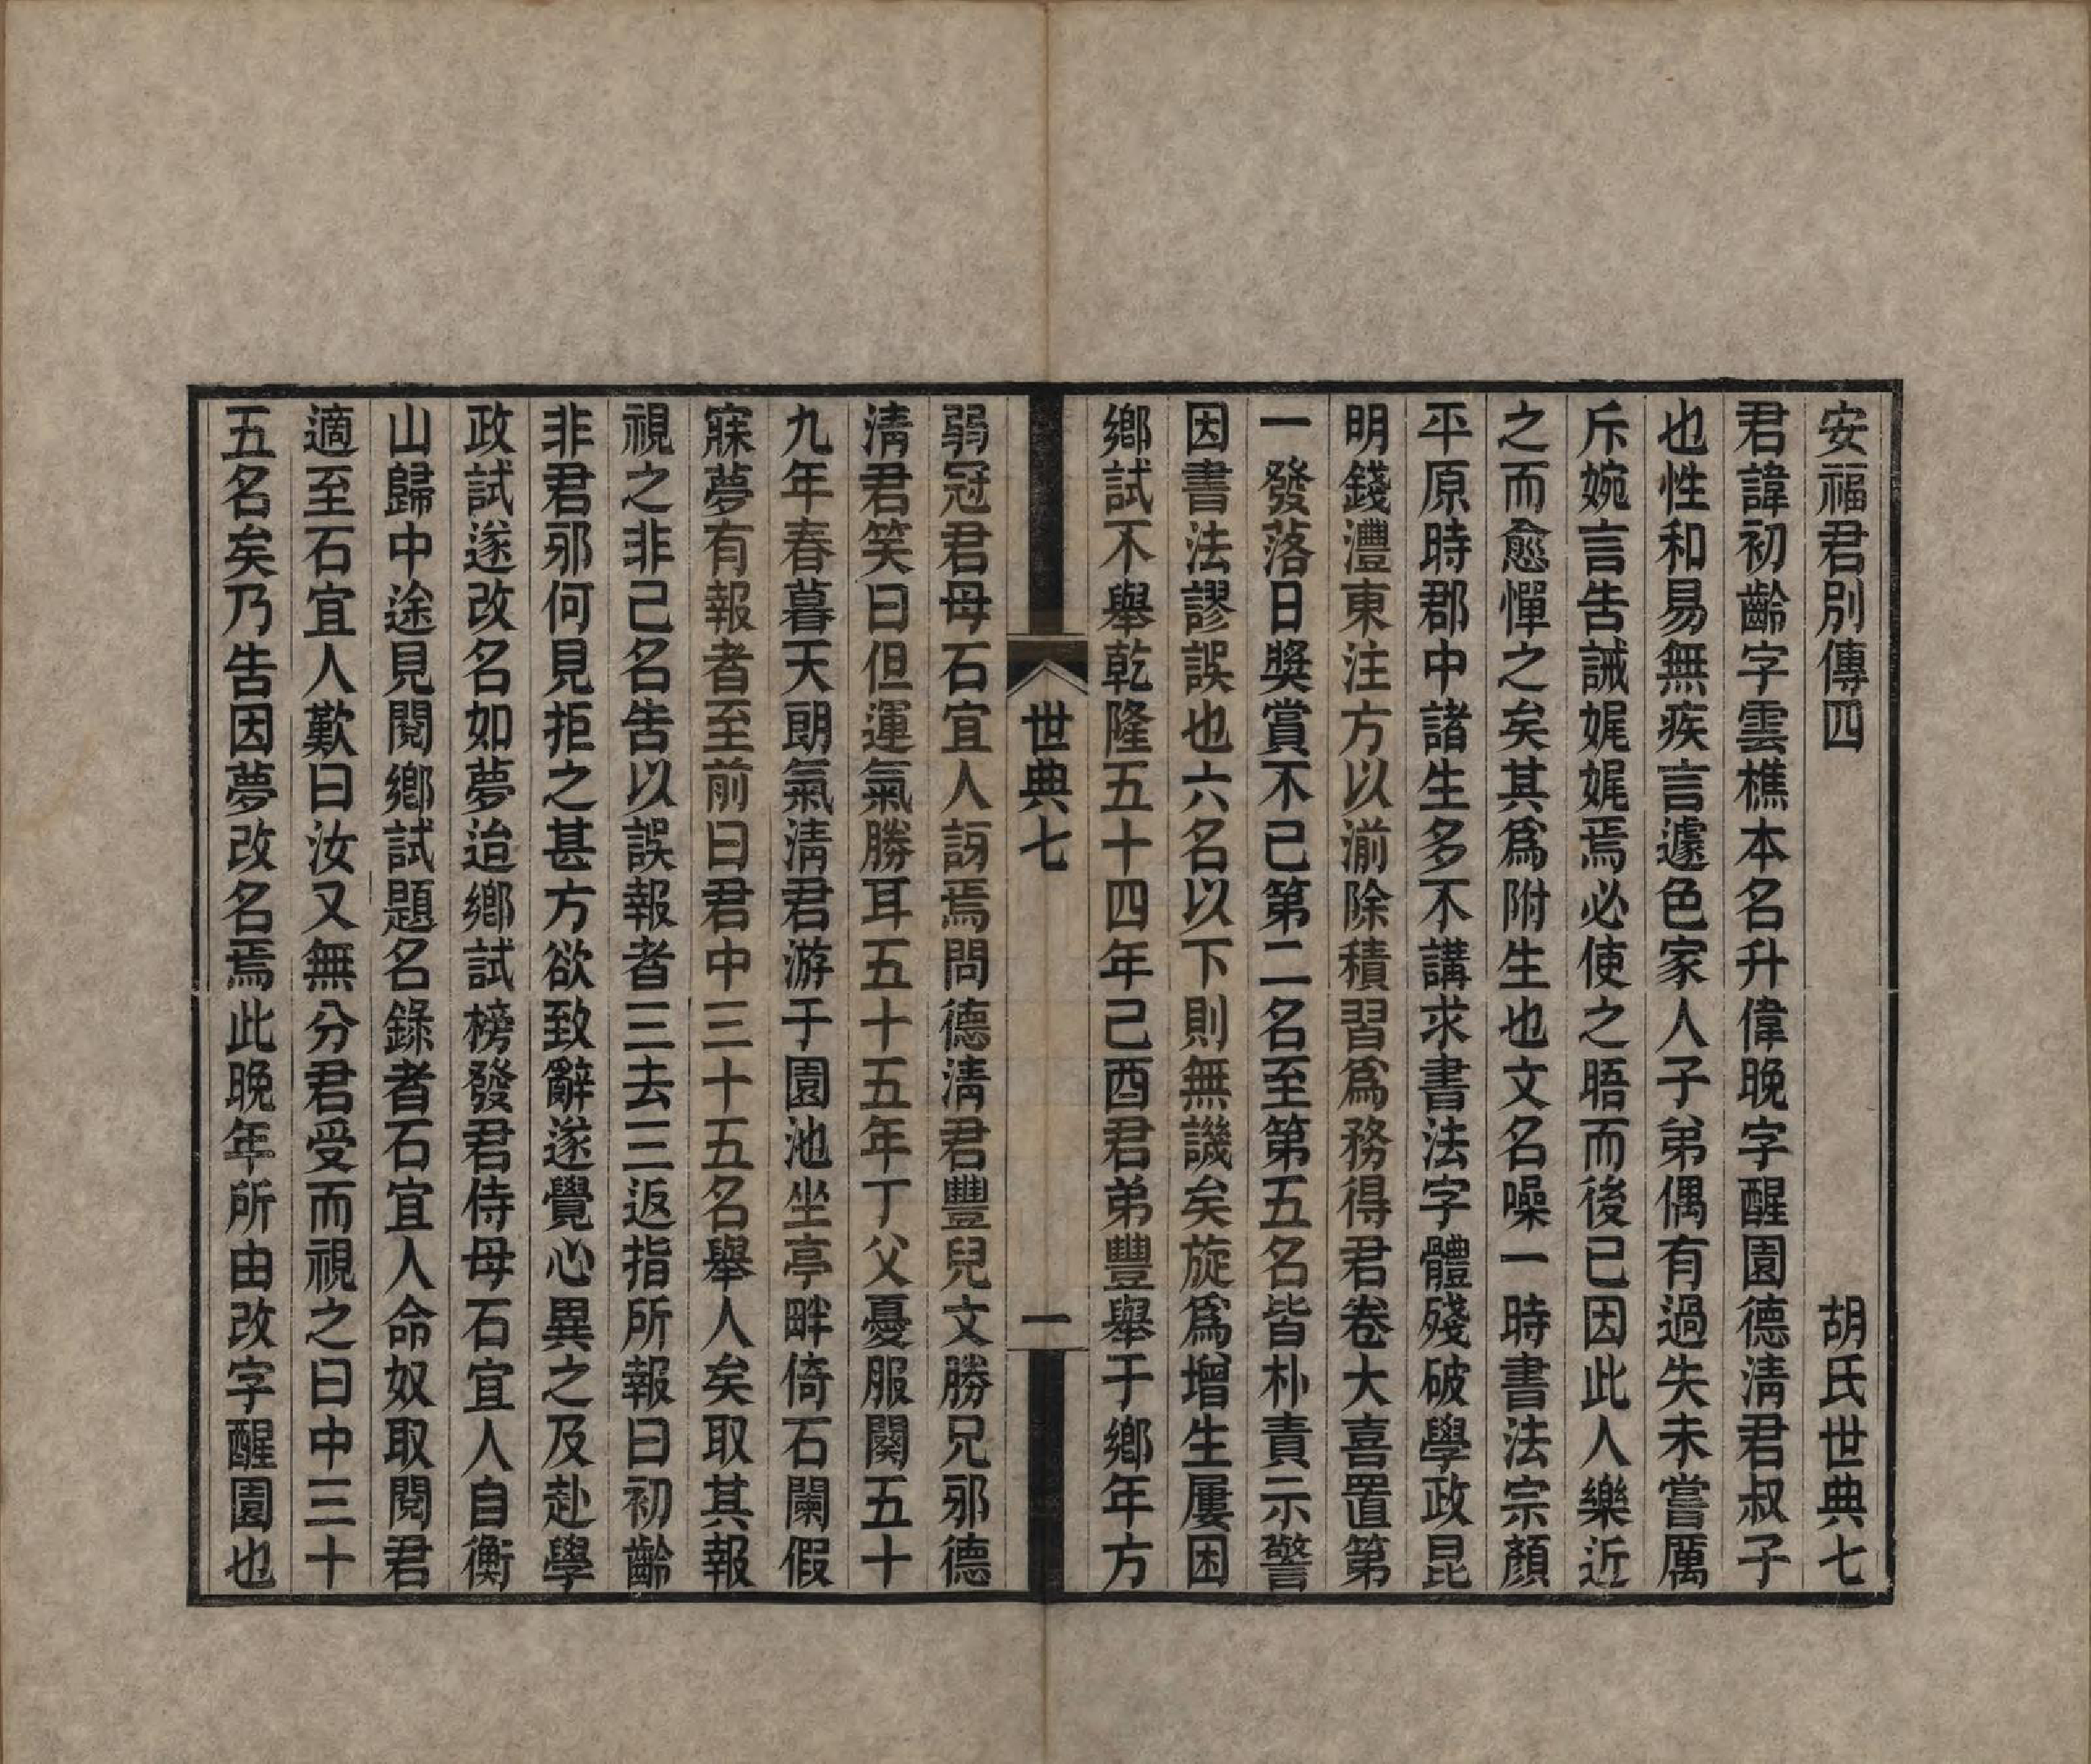 安福君別傳四 胡氏世典七
君諱初齡字雲樵本名升偉晚字醒園德清君叔子
也性和易無疾言遽色家人子弟偶有過失未嘗厲
斥婉言告誡娓娓焉必使之晤而後已因此人樂近
之而愈憚之矣其爲附生也文名噪一時書法宗顏
平原時郡中諸生多不講求書法字體殘破學政昆
明錢灃東注方以湔除積習爲務得君卷大喜置第
一發落日獎賞不已第二名至第五名皆朴責示警
因書法謬誤也六名以下則無譏矣旋爲增生屢困
鄉試不舉乾隆五十四年己酉君弟豐舉于鄉年方
世典七 一
弱冠君母石宜人訝焉問德清君豐兒文勝兄邪德
清君笑曰但運氣勝耳五十五年丁父憂服闋五十
九年春暮天朗氣清君游于園池坐亭畔倚石闌假
寐夢有報者至前曰君中三十五名舉人矣取其報
視之非己名告以誤報者三去三返指所報曰初齡
非君邪何見拒之甚方欲致辭遂覺心異之及赴學
政試遂改名如夢迨鄉試榜發君侍母石宜人自衡
山歸中途見閱鄉試題名錄者石宜人命奴取閱君
適至石宜人歎曰汝又無分君受而視之曰中三十
五名矣乃告因夢改名焉此晚年所由改字醒園也